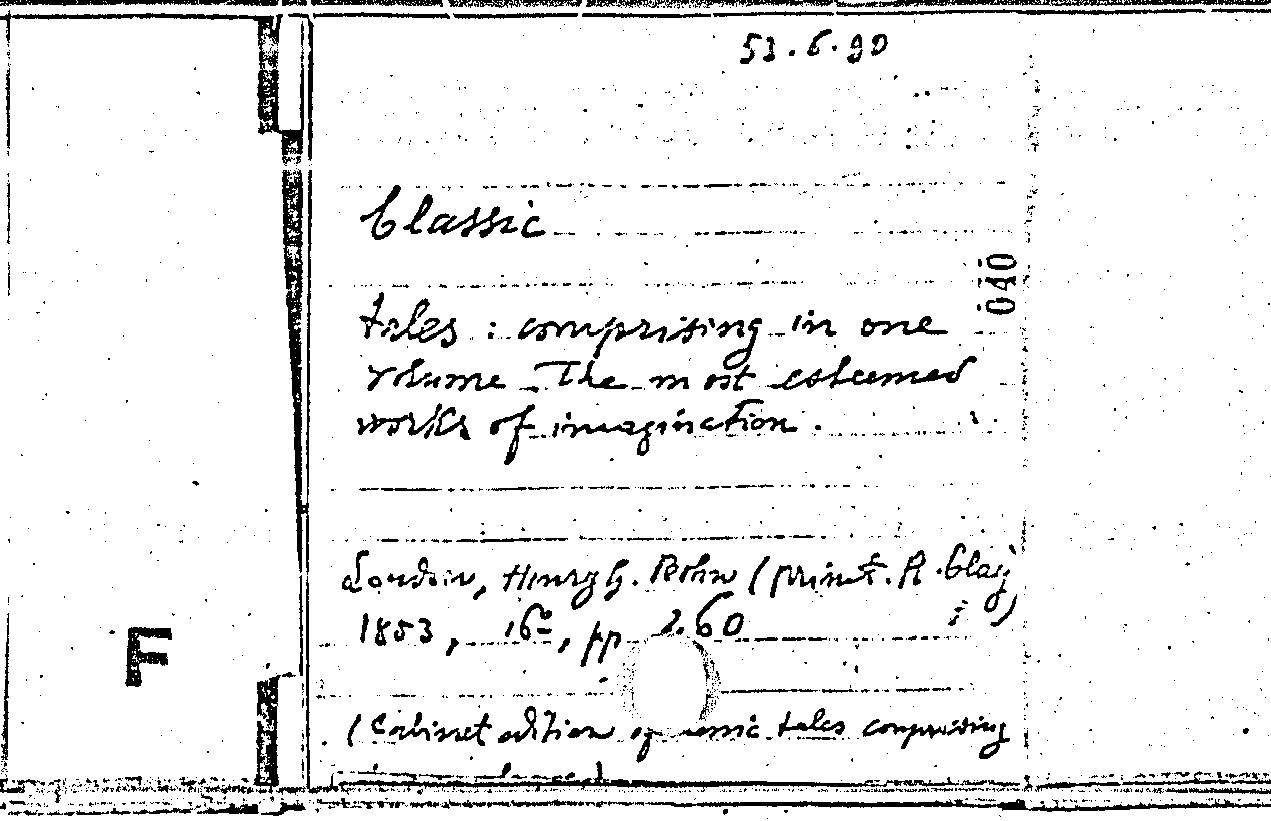 53.6.90
Classic
040
tales : comprising in one
volume The most esteemed
works of imagination.
London, Henry G. Bohn (print. R. Clay)
1853, 16º, pp 260
F
(Cabinet edition of tales comprising